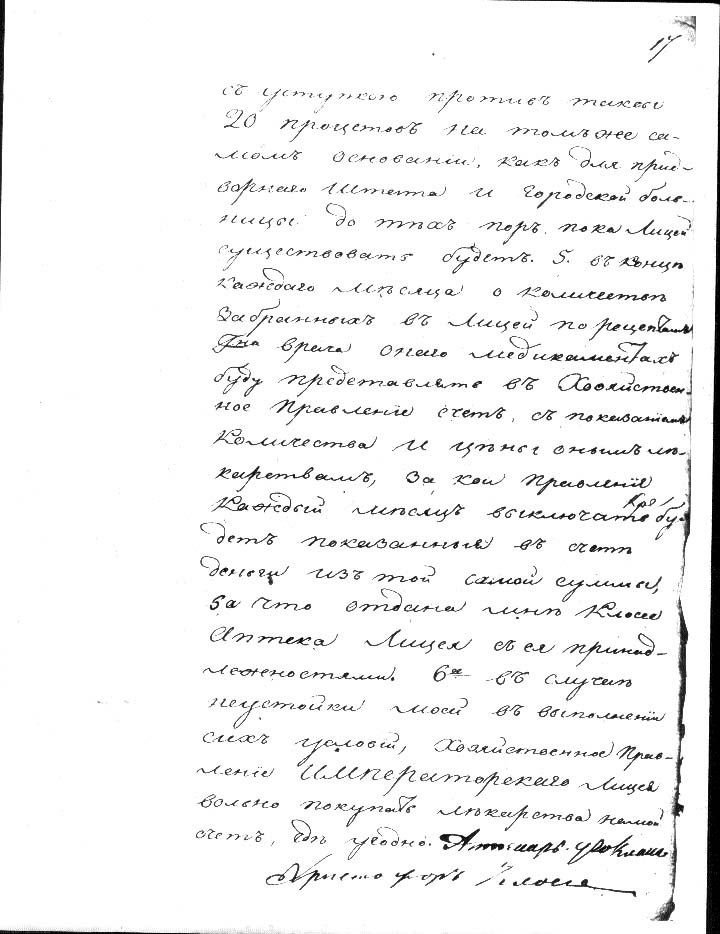 17
съ уступкою противъ таксы
20 процетовъ на томъ же са-
момъ основаніи, какъ для прид-
ворнаго Штата и городской боль-
ницы до тѣхъ поръ, пока Лицей
существовать будетъ. 5. въ концѣ
каждаго мѣсяца о количествѣ
забранныхъ въ Лицей по рецептамъ
врача онаго медикаментахъ
буду представлять въ Хозяйствен-
ное Правленіе счетъ, съ показаніемъ
количества и цѣны онымъ лѣ-
карствамъ, за кои Правленіе
каждый мѣсяцъ выключать бу-
детъ показанныя въ счетѣ
деньги изъ той самой суммы,
за что отдана мнѣ Клосе
Аптека Лицея съ ея принад-
лежностями. 6е въ случаѣ
неустойки моей въ выполненіи
сихъ условій, Хозяйственное Прав-
леніе ИМПЕРАТОРСКАГО Лицея
вольно покупать лѣкарства на мой
счетъ, гдѣ угодно. Аптекарь
Христофоръ Клосе